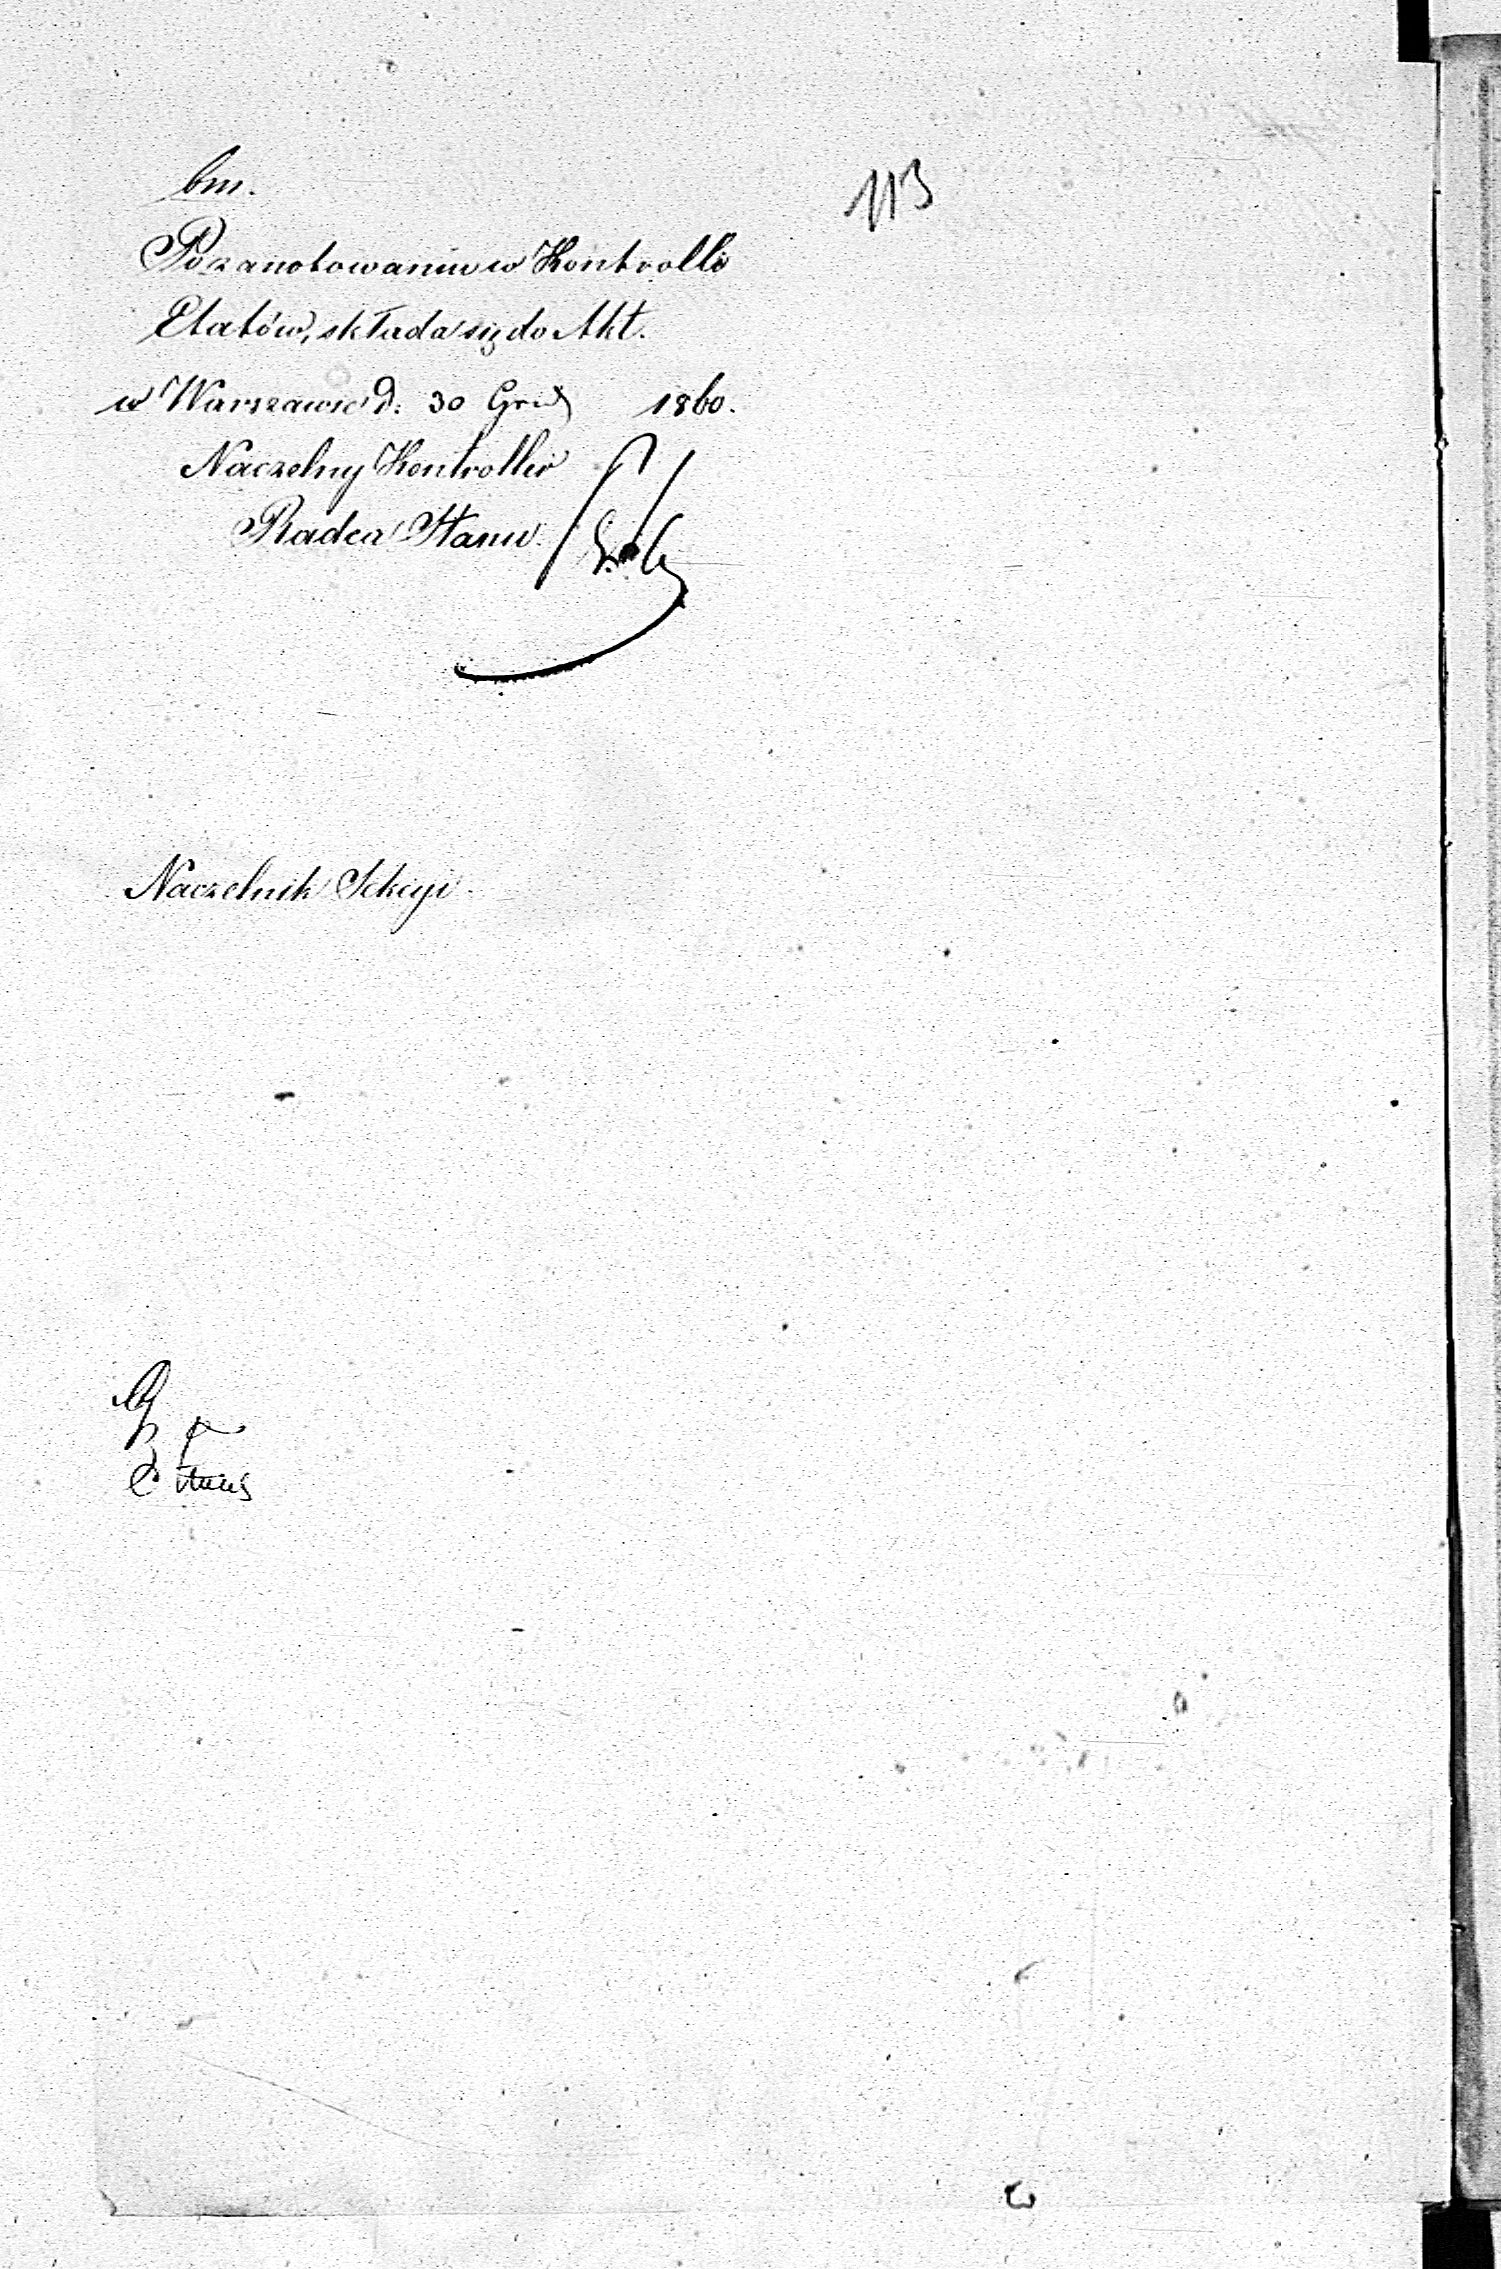 bm.
113
Po zanotowaniu w Kontrolli
Etatów, składa się do Akt.
w Warszawie d: 30 Grud 1860.
Naczelny Kontroller
Radca Stanu
Naczelnik Sekcyi